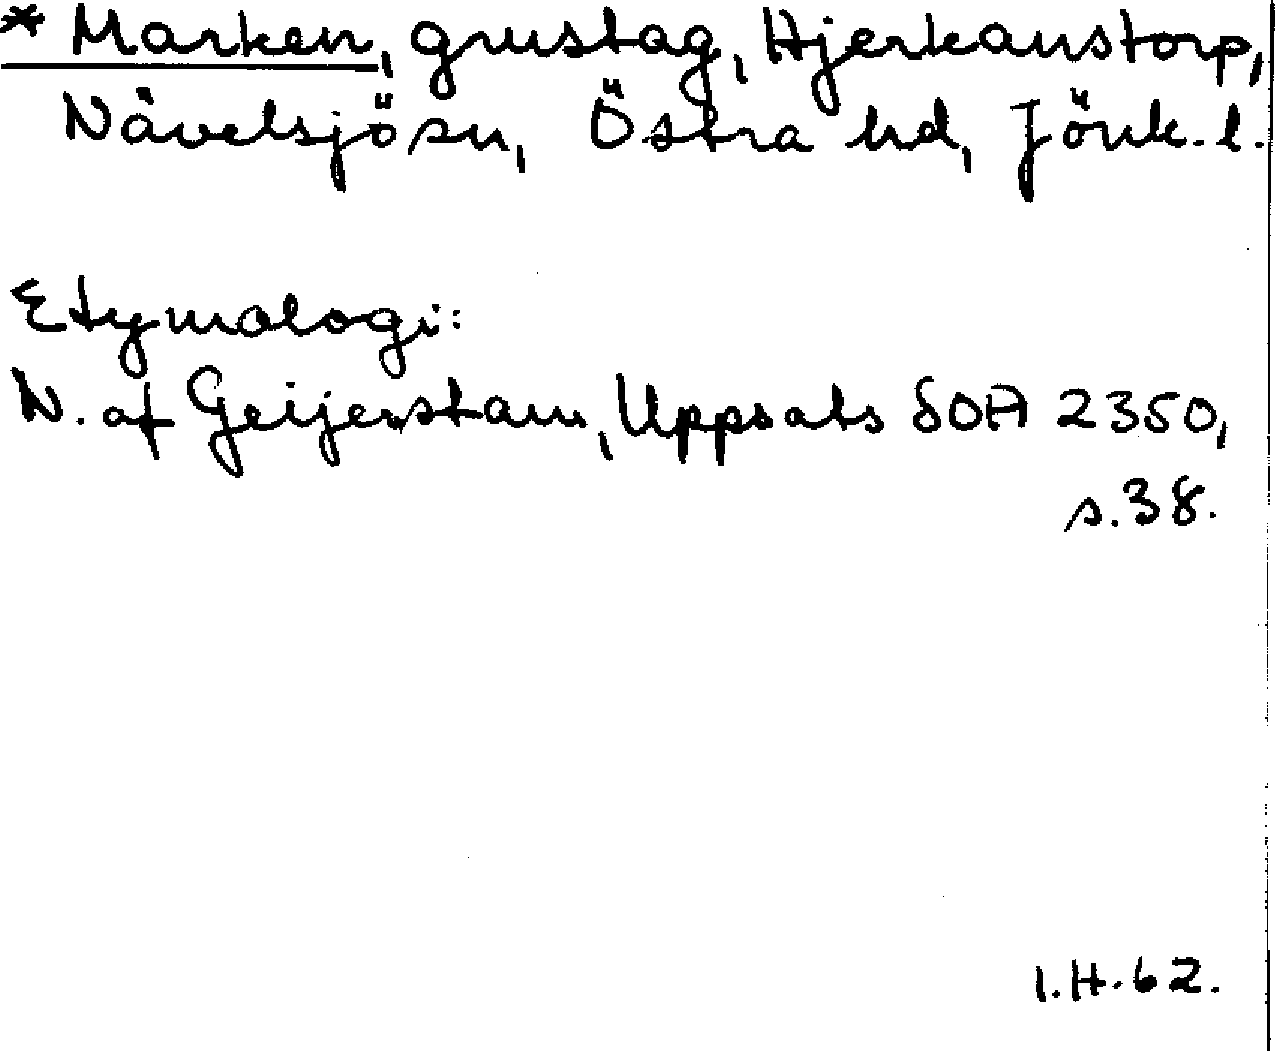 * Marken, grustag, Hjerkanstorp,
Nävelsjö sn, Östra hd, Jönk. l.
Etymologi:
N. af Geijerstam, Uppsats SOA 2350,
s. 38.
I.H. 62.